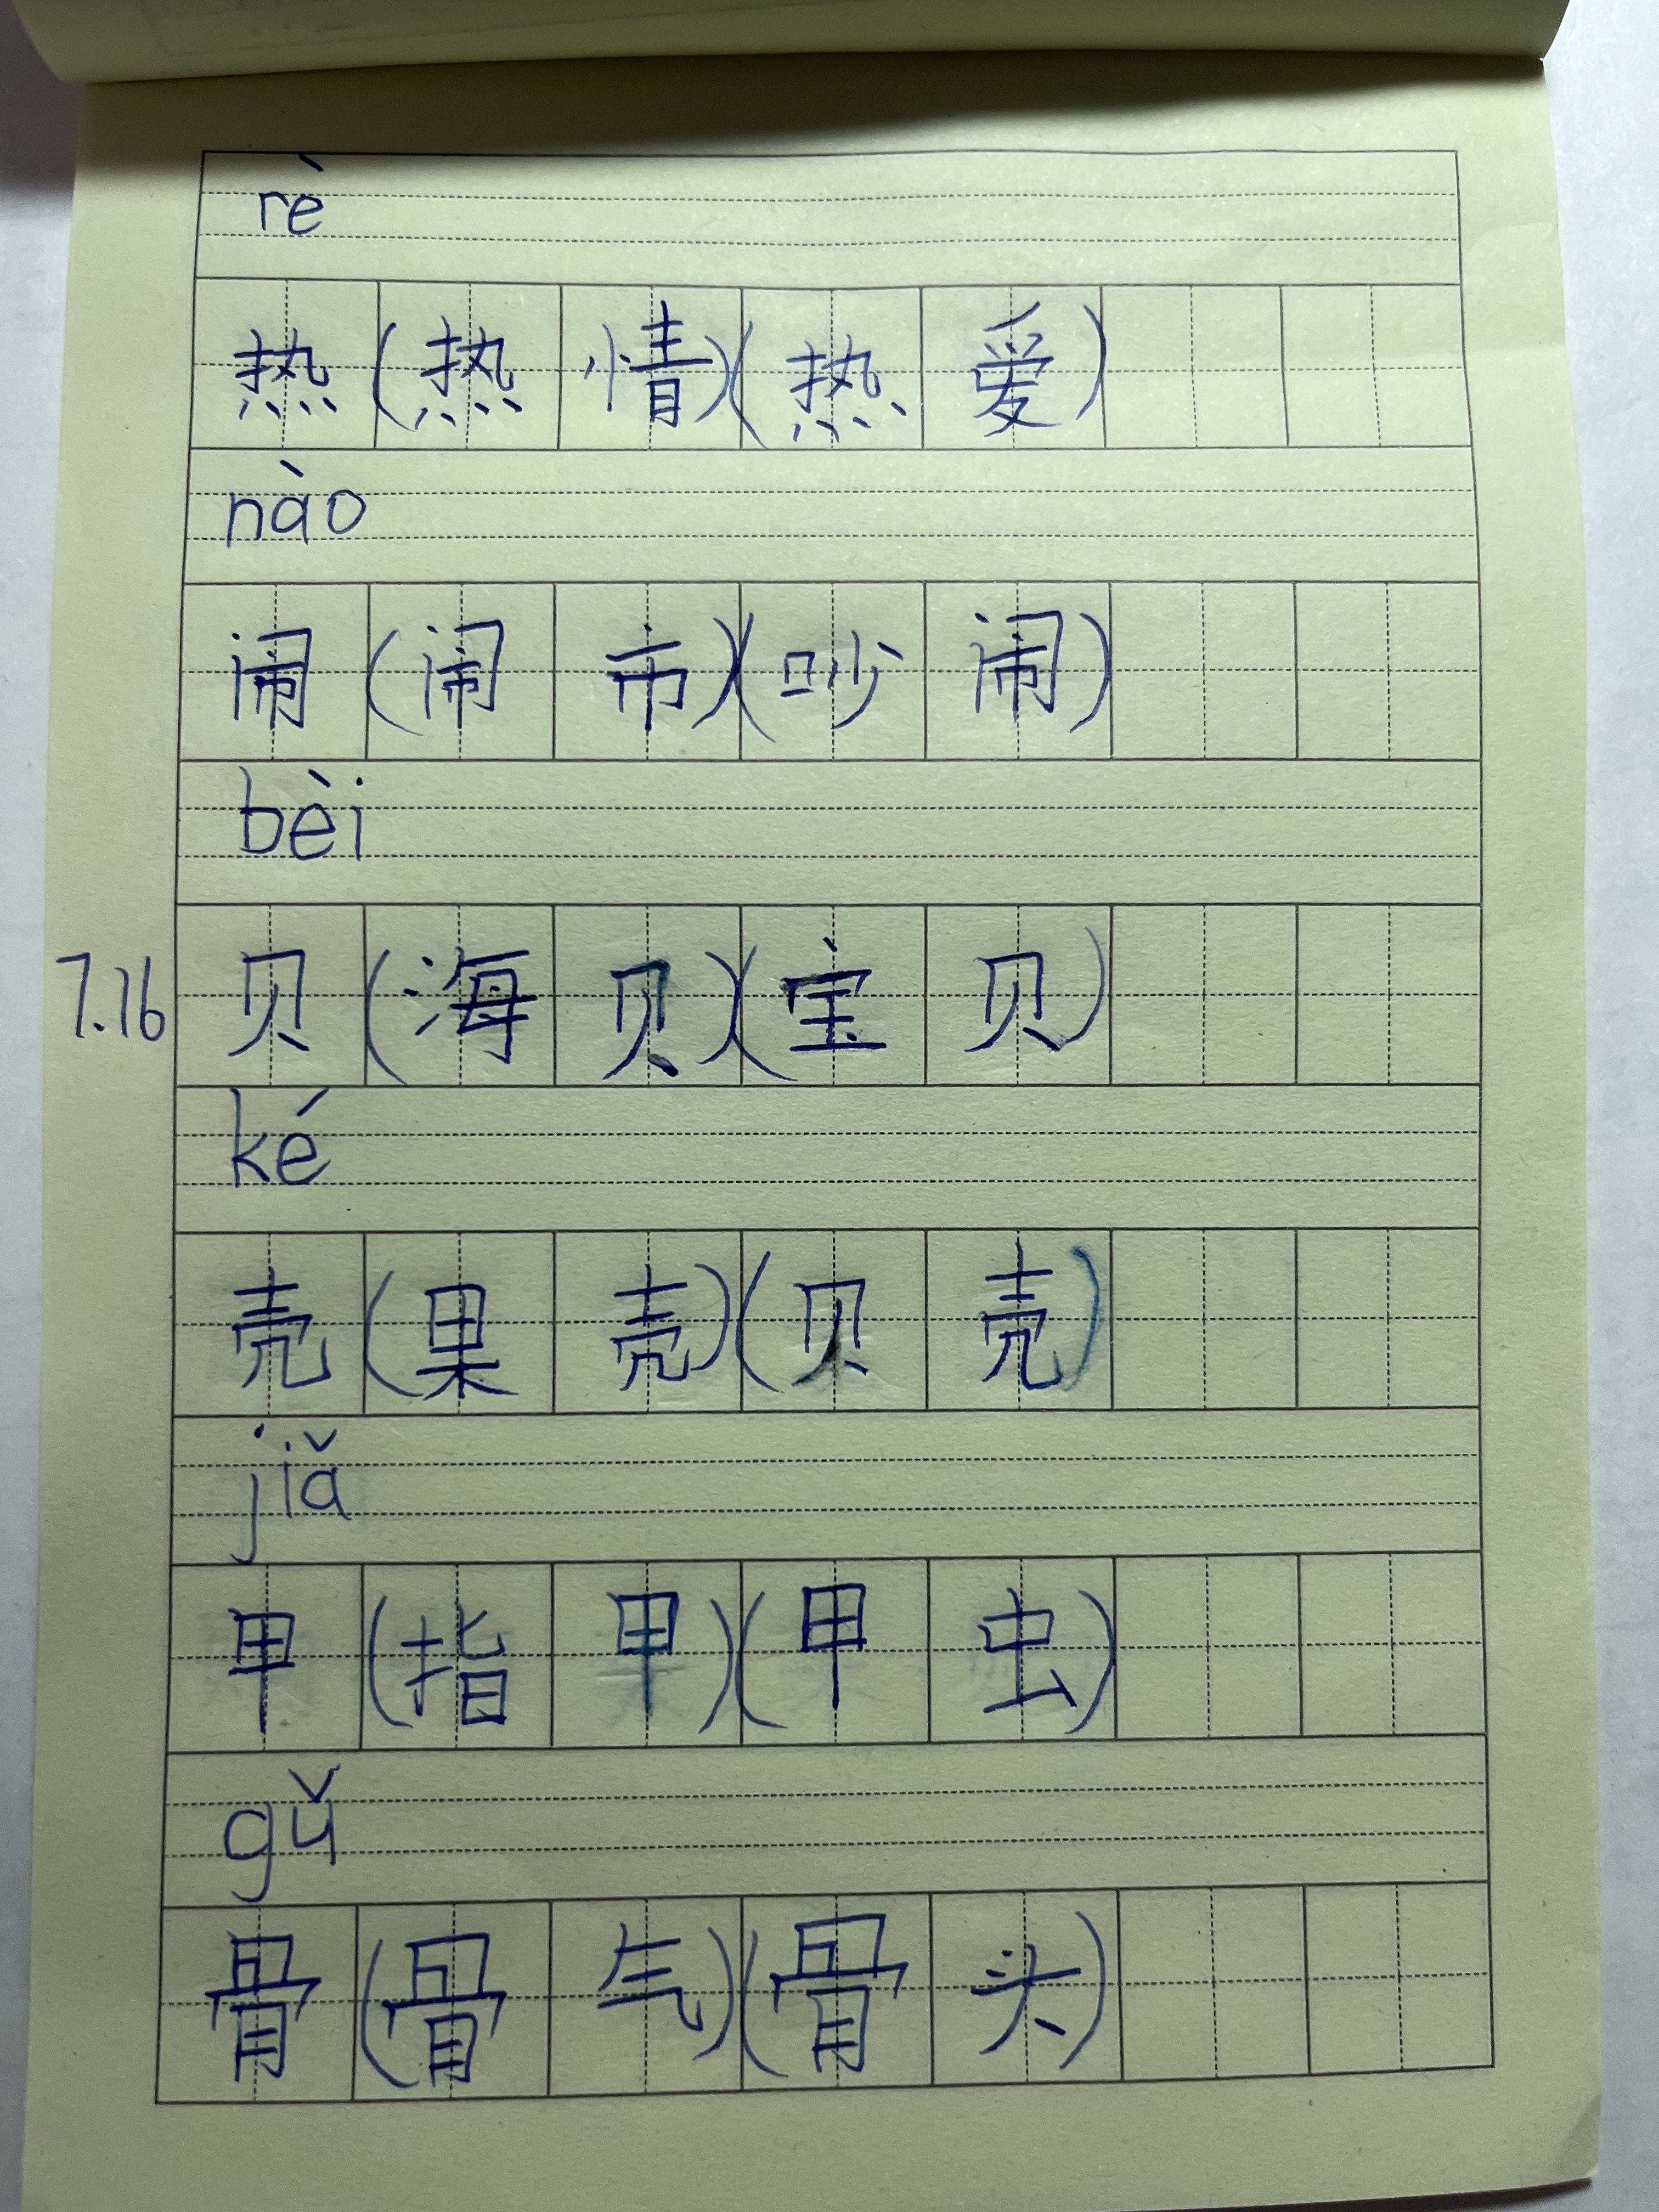 rè
热(热情)(热爱)
nào
闹(闹市)(吵闹)
bèi
7.16 贝(海贝)(宝贝)
ké
壳(果壳)(贝壳)
jiǎ
甲(指甲)(甲虫)
gǔ
骨(骨气)(骨头)